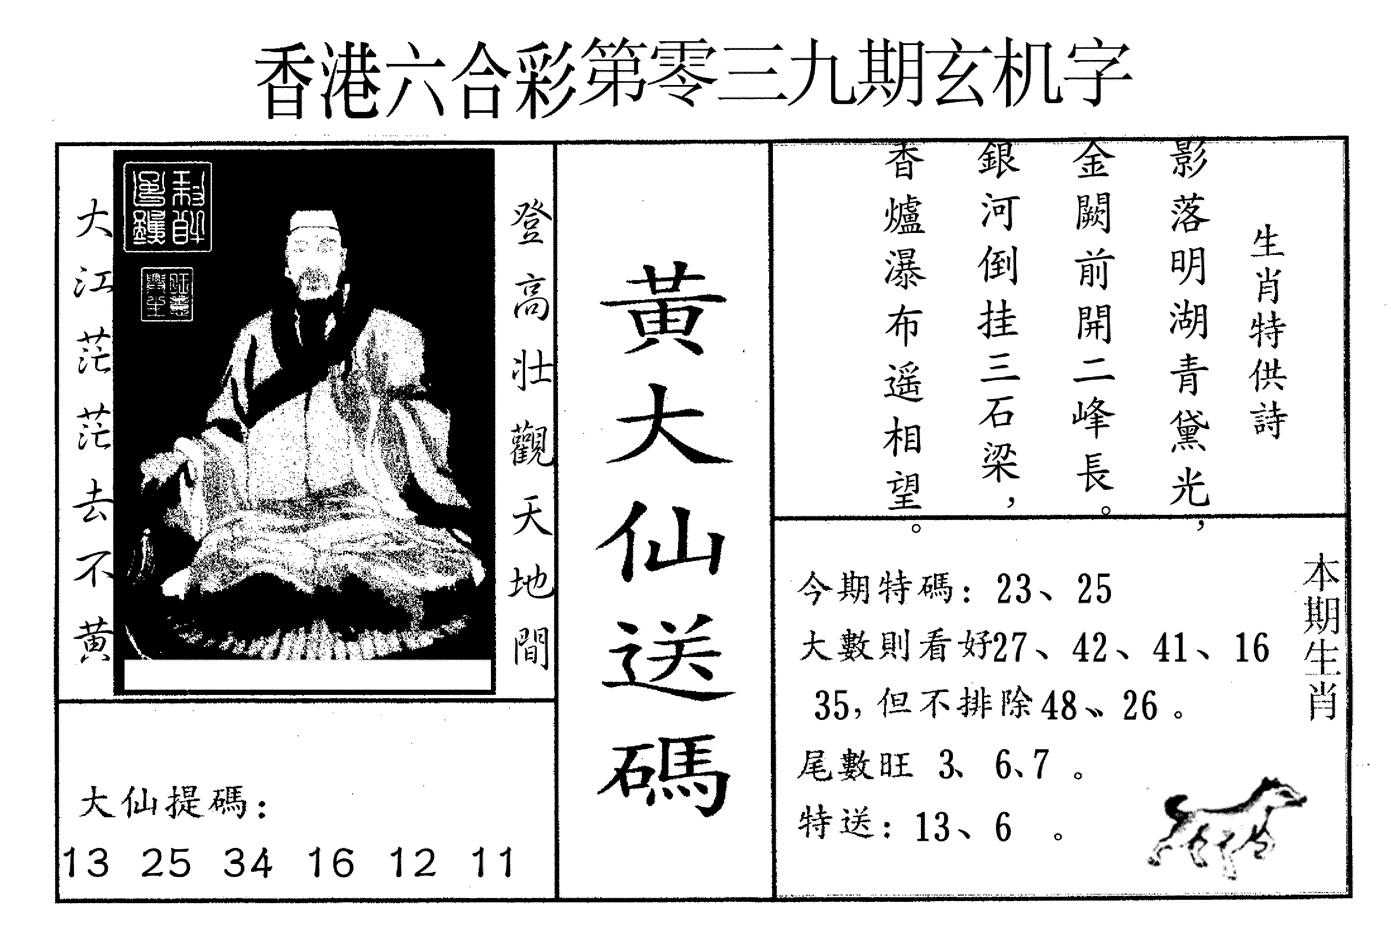 香港六合彩第零三九期玄机字
登高壯觀天地間
大江茫茫去不黄
大仙提碼：
13 25 34 16 12 11
黃大仙送碼
生肖特供詩
影落明湖青黛光，
金闕前開二峰長。
銀河倒挂三石梁，
香爐瀑布遥相望。
本期生肖
今期特碼：23、25
大數則看好27、42、41、16
35，但不排除48、26。
尾數旺 3、6、7 。
特送：13、6 。